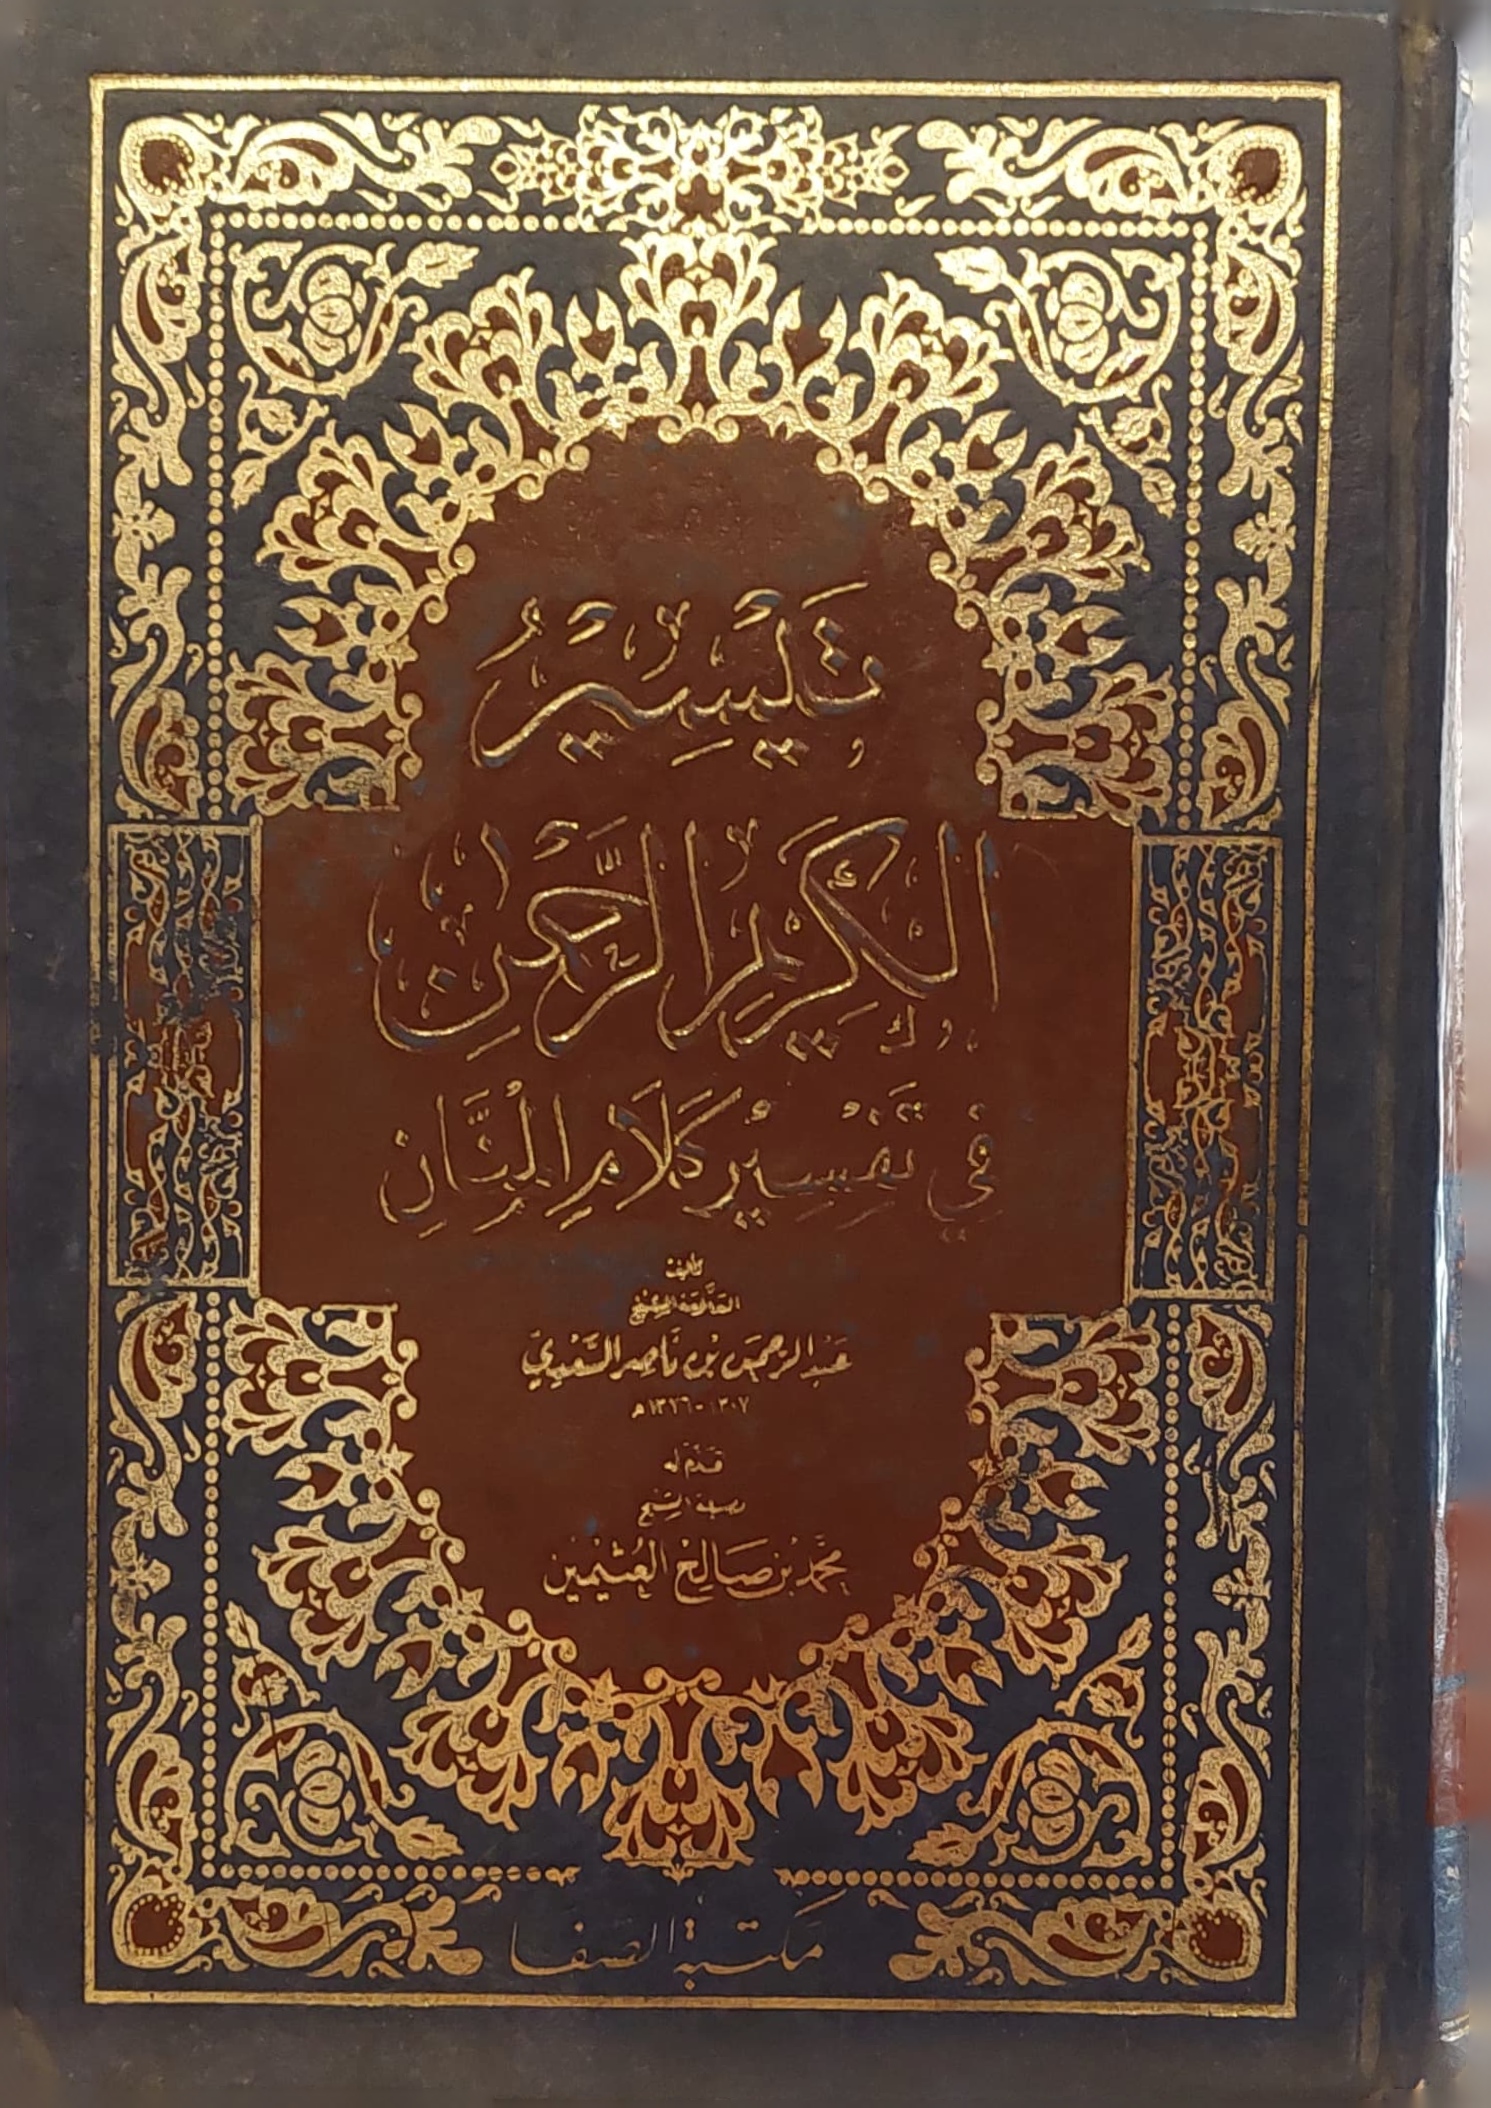 تَيْسِيرُ
الكَرِيمِ الرَّحْمٰنِ
فِي تَفْسِيرِ كَلَامِ المَنَّانِ
تأليف
العلّامة الشيخ
عبد الرحمن بن ناصر السَّعْدِيّ
١٣٠٧ - ١٣٧٦ هـ
قدّم له
فضيلة الشيخ
محمّد بن صَالِح العُثَيمين
مكتبة الصفا